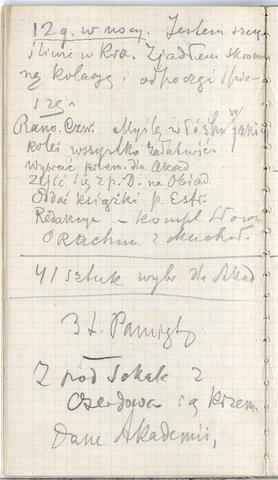 12 g. w nocy. Jestem szczę
śliwie w Kra. Zjadłem skrom
ną kolację i odpocząć śpie
szę.
Rano. Czw. Myślę w łóżku w jakiej
kolei wszystko załatwić
wybrać krzem. dla Akad
zejść się z p. D. na Obiad.
Oddać książki p. Estr.
Redakcya – kompl Słown
O Rachun z
41 sztuk wybr. dla Akad
3 ł. Pamięt.
Z pod Sokal z
są krzem.
Dane Akademii,